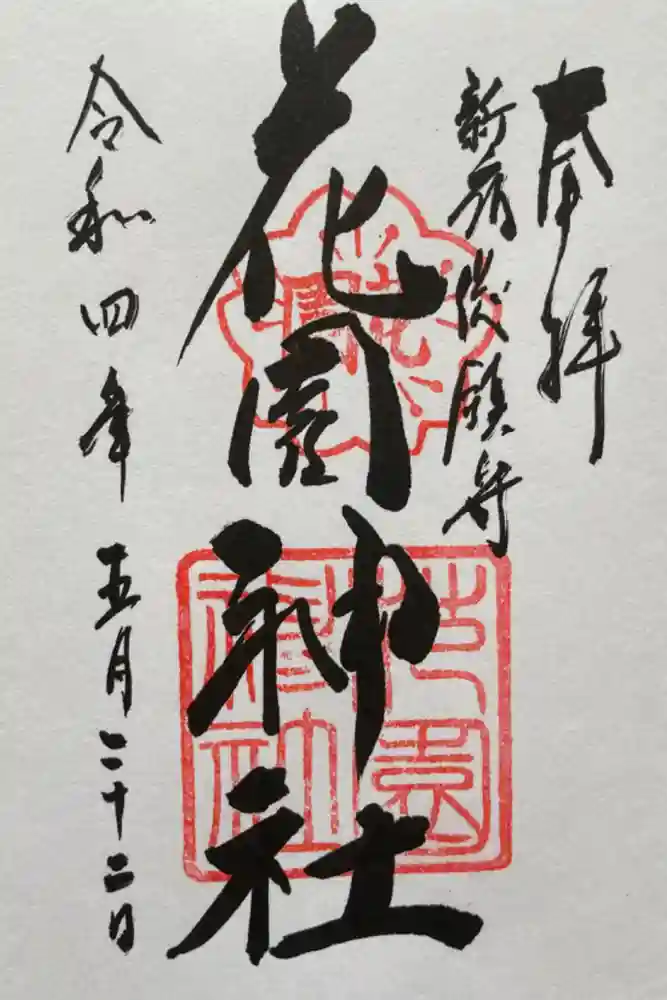 奉拝
新宿総鎮守
花園神社
令和四年 五月二十二日
花園神社